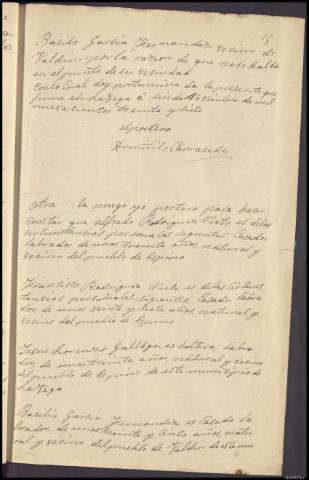 15
Basilio Garcia Hernandez vecino de
Valdin, por la razon de que no se halla
en el punto de su vecindad
con lo cual doy por termina da la presente que
firma en La Vega a seis de Noviembre de mil
nuevecientos treinta y siete
el portero
Domitilo Carracedo
Otra la pongo yo portero para hacer
constar que Alfredo Rodriguez Nieto es de las
circunstancias personales siguientes, Casado,
labrador de unos treinta años, natural y
vecino del pueblo de Espino
Francisco Rodriguez Nieto es de las circuns
tancias personales siguientes, Casado, labra
dor, de unos veinte y siete años, natural y
vecino del pueblo de Espino
Jesus Lorenzo Gallego, es soltero, labra
dor, de unos treinta años, natural y vecino
del pueblo de Espino de este municipio de
La Vega
Basilio Garcia Hernandez es Casado la
brador, de unos treinta y ocho años, natu
ral y vecino del pueblo de Valdin de este mu